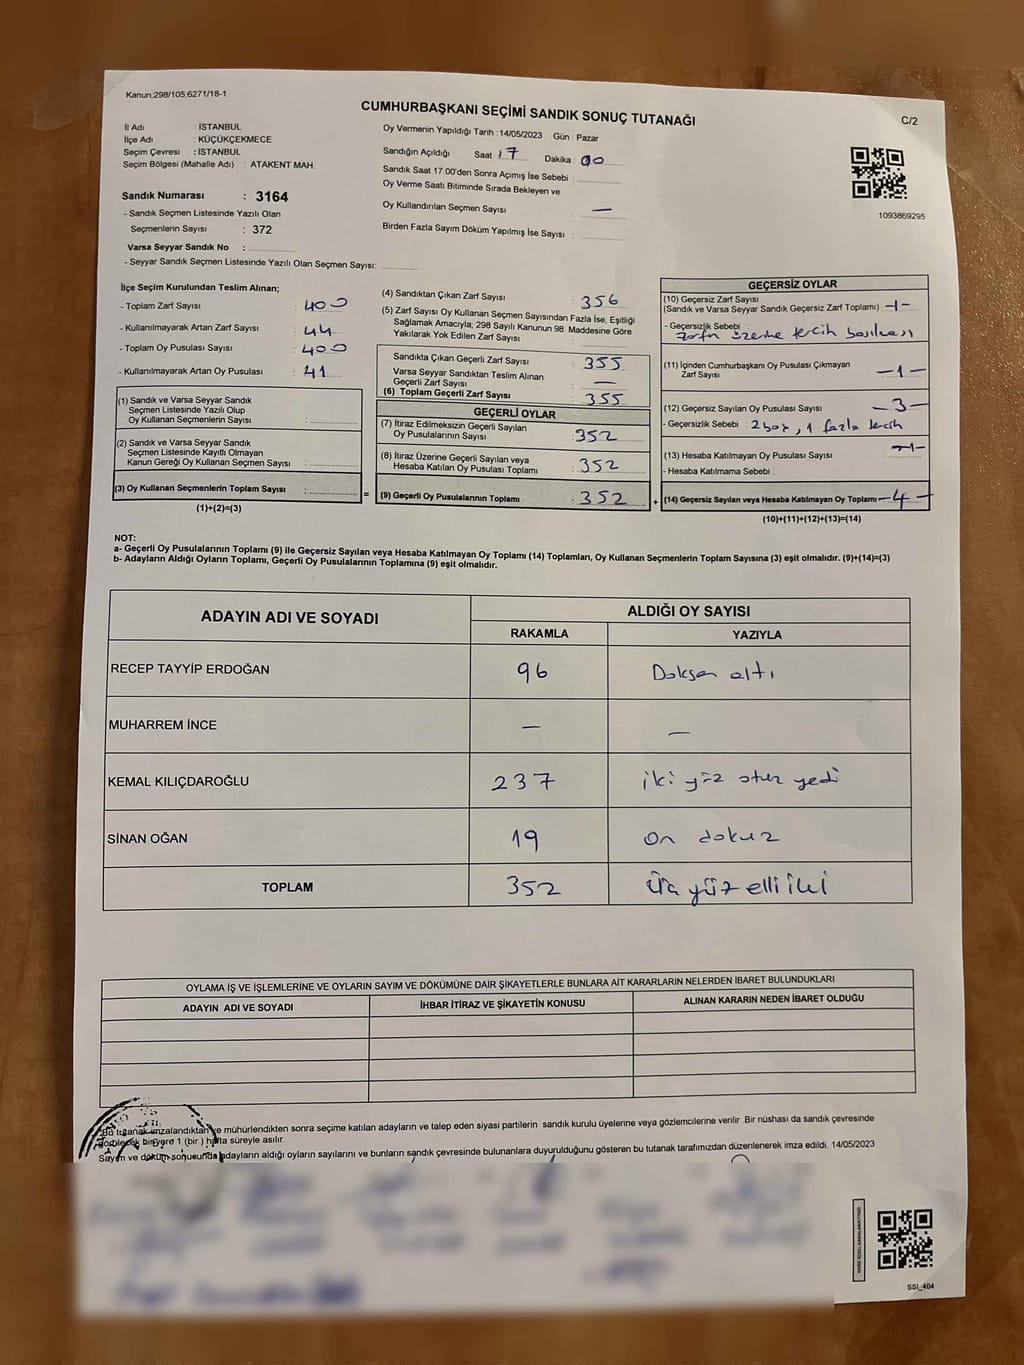 Kanun;298/105;6271/18-1
CUMHURBAŞKANI SEÇİMİ SANDIK SONUÇ TUTANAĞI
C/2
İl Adı : İSTANBUL
İlçe Adı : KÜÇÜKÇEKMECE
Seçim Çevresi : İSTANBUL
Seçim Bölgesi (Mahalle Adı) : ATAKENT MAH.
Sandık Numarası : 3164
- Sandık Seçmen Listesinde Yazılı Olan
Seçmenlerin Sayısı : 372
Varsa Seyyar Sandık No :
- Seyyar Sandık Seçmen Listesinde Yazılı Olan Seçmen Sayısı:
Oy Vermenin Yapıldığı Tarih :14/05/2023 Gün : Pazar
Sandığın Açıldığı Saat 17 Dakika 00
Sandık Saat 17.00'den Sonra Açımış İse Sebebi :
Oy Verme Saati Bitiminde Sırada Bekleyen ve
Oy Kullandırılan Seçmen Sayısı : —
Birden Fazla Sayım Döküm Yapılmış İse Sayısı :
1093869295
İlçe Seçim Kurulundan Teslim Alınan;
- Toplam Zarf Sayısı : 400
- Kullanılmayarak Artan Zarf Sayısı : 44
- Toplam Oy Pusulası Sayısı : 400
- Kullanılmayarak Artan Oy Pusulası : 41
(1) Sandık ve Varsa Seyyar Sandık
Seçmen Listesinde Yazılı Olup
Oy Kullanan Seçmenlerin Sayısı :
(2) Sandık ve Varsa Seyyar Sandık
Seçmen Listesinde Kayıtlı Olmayan
Kanun Gereği Oy Kullanan Seçmen Sayısı :
(3) Oy Kullanan Seçmenlerin Toplam Sayısı :
(1)+(2)=(3)
=
(4) Sandıktan Çıkan Zarf Sayısı : 356
(5) Zarf Sayısı Oy Kullanan Seçmen Sayısından Fazla İse, Eşitliği
Sağlamak Amacıyla; 298 Sayılı Kanunun 98. Maddesine Göre
Yakılarak Yok Edilen Zarf Sayısı :
Sandıkta Çıkan Geçerli Zarf Sayısı : 355
Varsa Seyyar Sandıktan Teslim Alınan
Geçerli Zarf Sayısı : —
(6) Toplam Geçerli Zarf Sayısı : 355
GEÇERLİ OYLAR
(7) İtiraz Edilmeksizin Geçerli Sayılan
Oy Pusulalarının Sayısı : 352
(8) İtiraz Üzerine Geçerli Sayılan veya
Hesaba Katılan Oy Pusulası Toplamı : 352
(9) Geçerli Oy Pusulalarının Toplamı : 352
+
GEÇERSİZ OYLAR
(10) Geçersiz Zarf Sayısı
(Sandık ve Varsa Seyyar Sandık Geçersiz Zarf Toplamı) -1-
- Geçersizlik Sebebi :
Zarfın üzerine tercih basılması
(11) İçinden Cumhurbaşkanı Oy Pusulası Çıkmayan
Zarf Sayısı -1-
(12) Geçersiz Sayılan Oy Pusulası Sayısı -3-
- Geçersizlik Sebebi : 2 boş, 1 fazla tercih
(13) Hesaba Katılmayan Oy Pusulası Sayısı
- Hesaba Katılmama Sebebi :
(14) Geçersiz Sayılan veya Hesaba Katılmayan Oy Toplamı -4-
(10)+(11)+(12)+(13)=(14)
NOT:
a- Geçerli Oy Pusulalarının Toplamı (9) ile Geçersiz Sayılan veya Hesaba Katılmayan Oy Toplamı (14) Toplamları, Oy Kullanan Seçmenlerin Toplam Sayısına (3) eşit olmalıdır. (9)+(14)=(3)
b- Adayların Aldığı Oyların Toplamı, Geçerli Oy Pusulalarının Toplamına (9) eşit olmalıdır.
ADAYIN ADI VE SOYADI
ALDIĞI OY SAYISI
RAKAMLA YAZIYLA
RECEP TAYYİP ERDOĞAN 96 Doksan altı
MUHARREM İNCE — —
KEMAL KILIÇDAROĞLU 237 iki yüz otuz yedi
SİNAN OĞAN 19 On dokuz
TOPLAM 352 Üç yüz elli iki
OYLAMA İŞ VE İŞLEMLERİNE VE OYLARIN SAYIM VE DÖKÜMÜNE DAİR ŞİKAYETLERLE BUNLARA AİT KARARLARIN NELERDEN İBARET BULUNDUKLARI
ADAYIN ADI VE SOYADI İHBAR İTİRAZ VE ŞİKAYETİN KONUSU ALINAN KARARIN NEDEN İBARET OLDUĞU
Bu tutanak imzalandıktan ve mühürlendikten sonra seçime katılan adayların ve talep eden siyasi partilerin sandık kurulu üyelerine veya gözlemcilerine verilir. Bir nüshası da sandık çevresinde
görülecek bir yere 1 (bir ) hafta süreyle asılır.
Sayım ve döküm sonucunda adayların aldığı oyların sayılarını ve bunların sandık çevresinde bulunanlara duyurulduğunu gösteren bu tutanak tarafımızdan düzenlenerek imza edildi. 14/05/2023
SSI_404